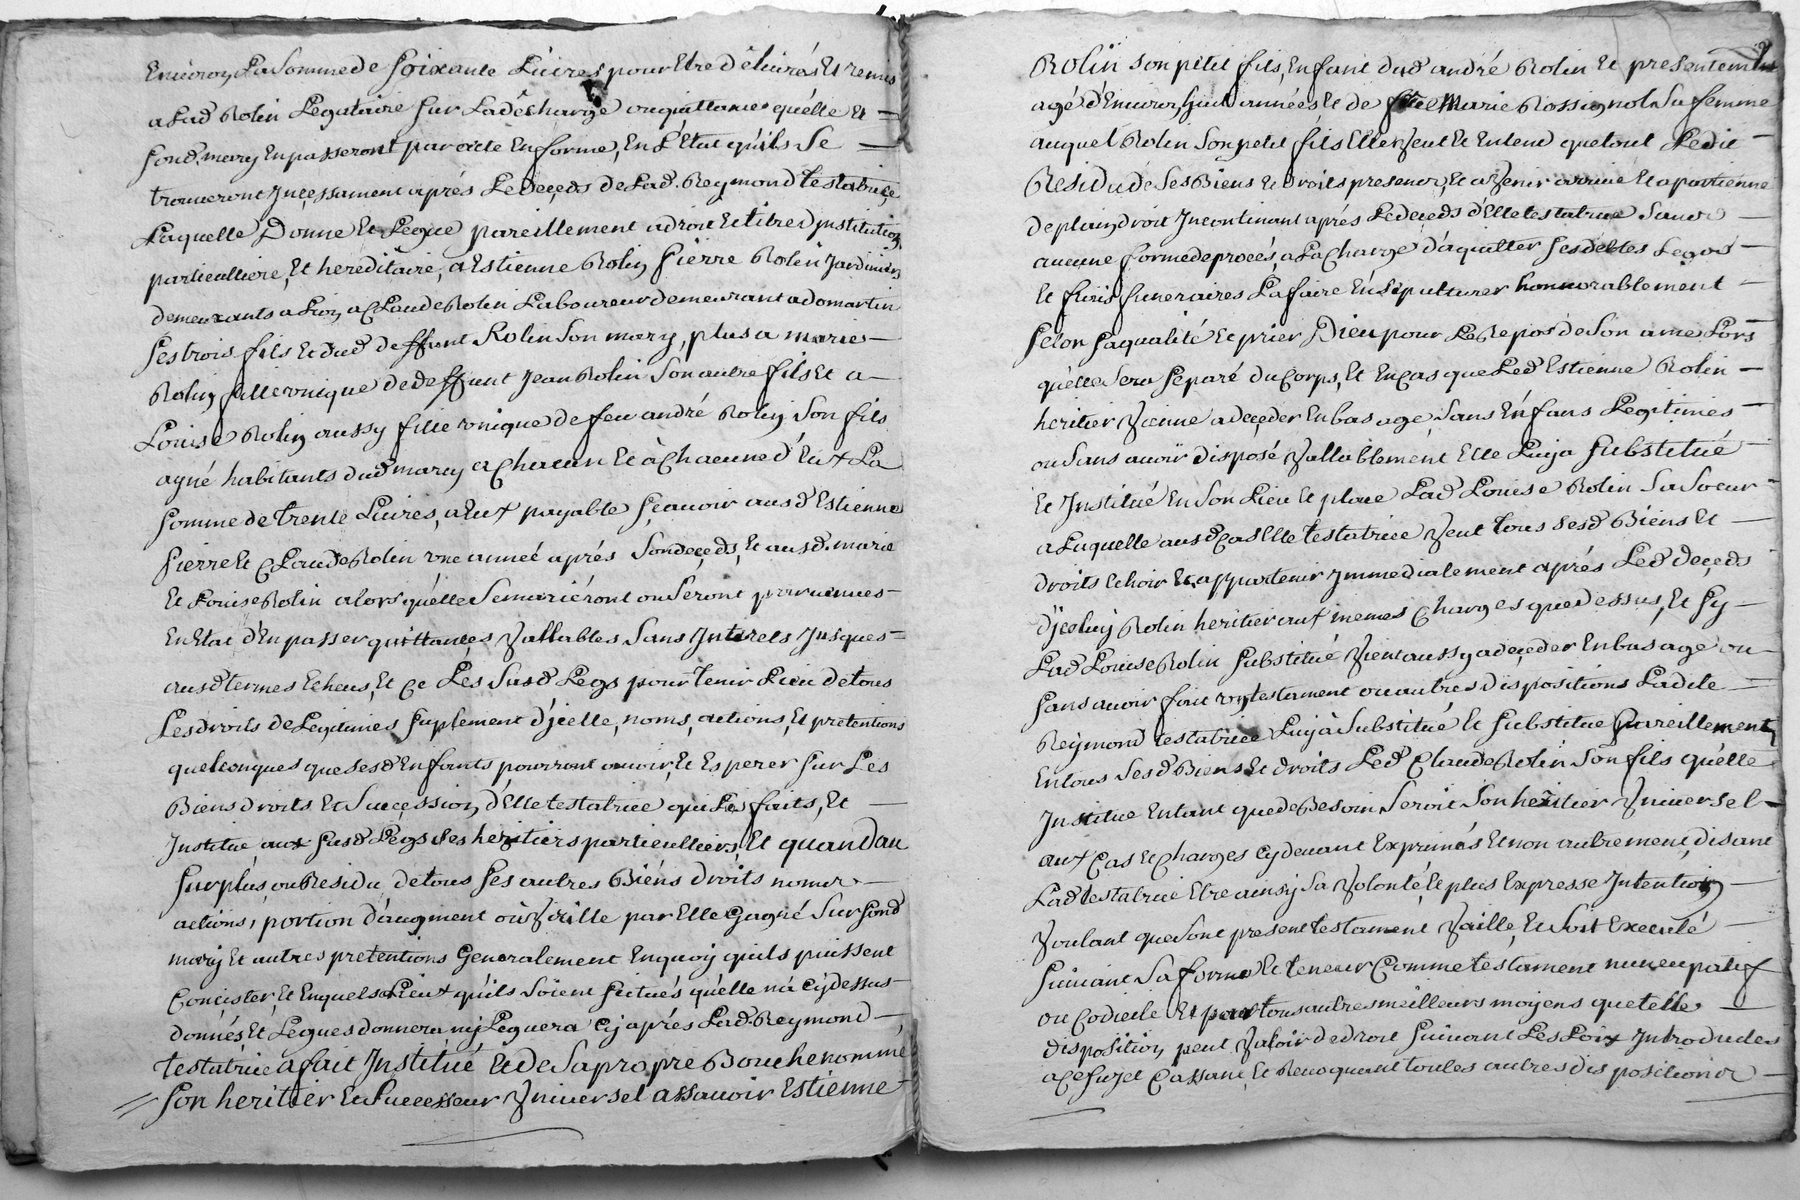 Environ La Somme de Soixante Livres pour Etre délivrés Et remis
a Lad Rolin Legataire Sur La décharge ou quittance qu'élle Et
Sond. mary En passeront par acte En forme, En L'Etat qu'ils Se
trouveront Incessament aprés Le deçeds de Lad. Reymond testatrice
Laquelle Donne Et Legue pareillement a droit Et titre d'Institution
particulliere, Et hereditaire, a Estienne Rolin Pierre Rolin Jardiniers
demeurants a Lion, a Claude Rolin Laboureur demeurant a domartin
Ses trois fils Et dud deffunt Rolin Son mary, plus a marie
Rolin fille unique de deffunt Jean Rolin Son autre fils Et a
Louise Rolin aussy fille unique de feu andré Rolin Son fils
ayné habitants dud marcy a Chacun Et à Chacune d'Eux La
Somme de trente Livres, a Eux payable Sçavoir ausd Estienne
Pierre Et Claude Rolin une année aprés Son deçeds, Et ausd. marie
Et Louise Rolin alors qu'élle Se mariéront ou Seront parvenues
En Etat d'En passer quittances Vallables Sans Interets Jusques
ausd termes Echeus, Et Ce Les Susd Legs pour tenir Lieu de tous
Les droits de Legitimes Suplement d'jcelle, noms, actions, Et pretentions
quelconques que Sesd Enfants pourront avoir, Et Esperer Sur Les
Biens droits Et Sucçession d'Elle testatrice qui Les faits, Et
Institue aux Susd Legs Ses heritiers particulliers, Et quand au
Surplus ou Residu de tous Ses autres Biéns droits noms
actions, portion d'augment où Virille par Elle Gagné Sur Sond
mary Et autres pretentions Generalement En quoy qu'ils puissent
Concister, Et En quels Lieux qu'ils Soient Scitués qu'élle n'a Cy dessus
donnés Et Legues donnera ny Leguera Cy aprés Lad. Reymond
testatrice a fait Institué Et de Sa propre Bouche nommé
Son heritier Et Successeur Vniversel assavoir Estienne
Rolin Son petit fils, Enfant dud andré Rolin Et presentement
agé d'Environ huit années Et de Marie Rossignol Sa femme
auquel Rolin Son petit fils Elle Veut Et Entend que tout Ledit
Residu de Ses Biens Et droits presents, Et a Venir arrive Et apartienne
de plain droit Incontinant aprés Le deçeds d'Elle testatrice Sans
aucune forme de procés, a La Charge d'aquitter Ses debtes Legs
Et frais funeraires La faire Ensepulturer honnorablement
Selon Sa qualité Et prier Dieu pour Le Repos de Son ame Lors
qu'elle Sera Separé du Corps, Et En Cas que Led Estienne Rolin
heritier Vienne a deçeder En bas age Sans Enfans Legitimes
ou Sans avoir disposé Vallablement Elle Luy a Substitué
Et Institué En Son Lieu Et place Lad Louise Rolin Sa Soeur
a Laquelle ausd Cas Elle testatrice Veut tous Sesd Biens Et
droits Echoir Et appartenir Immediatement aprés Led deçeds
d'jceluy Rolin heritier aux memes Charges que dessus, Et Sy
Lad Louise Rolin Substitué Vient aussy a deçeder En bas age ou
Sans avoir fait un testament ou autres dispositions Ladite
Reymond testatrice Luy à Substitué Et Substitue Pareillement
En tous Sesd Biens Et droits Led Claude Rolin Son fils qu'élle
Institue En tant que de Besoin Seroit Son heritier Vniversel
aux Cas Et Charges Cy devant Exprimés Et non autrement, disant
Lad testatrice Etre ainsy Sa Volonté, Et plus Expresse Intention
Voulant que Sont present testament Vaille, Et Soit Executé
Suivant Sa forme Et teneur Comme testament nuncupatif
ou Codicile Et par tous autres meilleurs moyens que telle
disposition peut Valoir de droit Suivant Les Loix Introduites
a Ce Sujet Cassant, Et Revoquant toutes autres dispositions